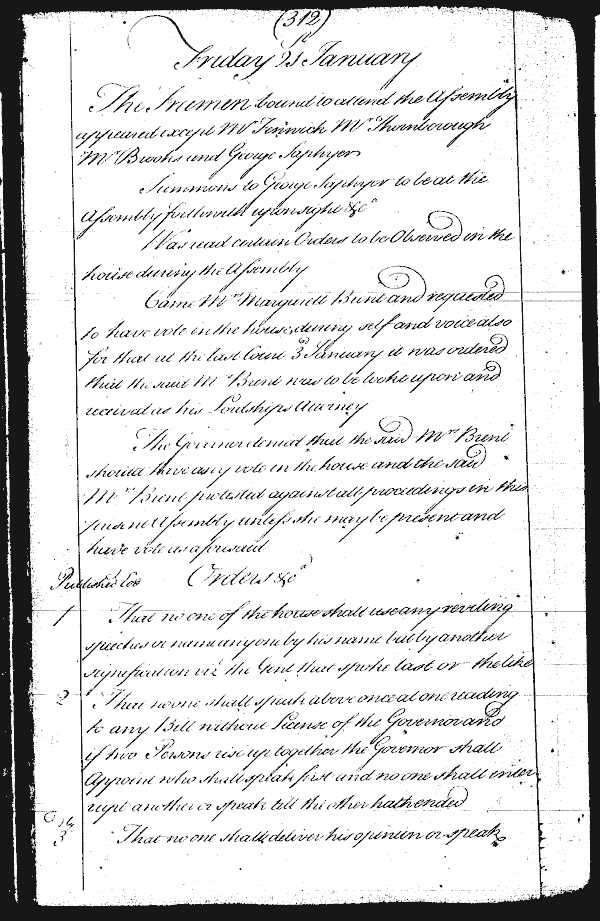 (312)
Friday 21st January
The Freemen bound to attend the Assembly
appeared except Mr Fenwick Mr Thornborough
Mr Brooks and George Saphyer
Summons to George Saphyer to be at the
Assembly forthwith upon sight &c
Was read certain Orders to be Observed in the
house during the Assembly
Came Mrs Margarett Brent and requested
to have vote in the house self and voice also
for that at the last Court 3d January it was ordered
that the said Mrs Brent was to be lookd upon and
received as his Lordships Attorney
The Governor denied that the said Mrs Brent
should have any vote in the house and the said
Mrs Brent protested against all proceedings in this
present Assembly unless she may be present and
have vote as aforesaid
Published Orders &c
1 That no one of the house shall use any reviling
speeches or name any one by his name but by another
signification viz the Gent that spoke last or the like
2 That no one shall speak above once at one reading
to any Bill without License of the Governor and
if two Persons rise up together the Governor shall
Appoint who shall speak first and no one shall inter
rupt another or speak till the other hath ended
3 That no one shall deliver his opinion or speak